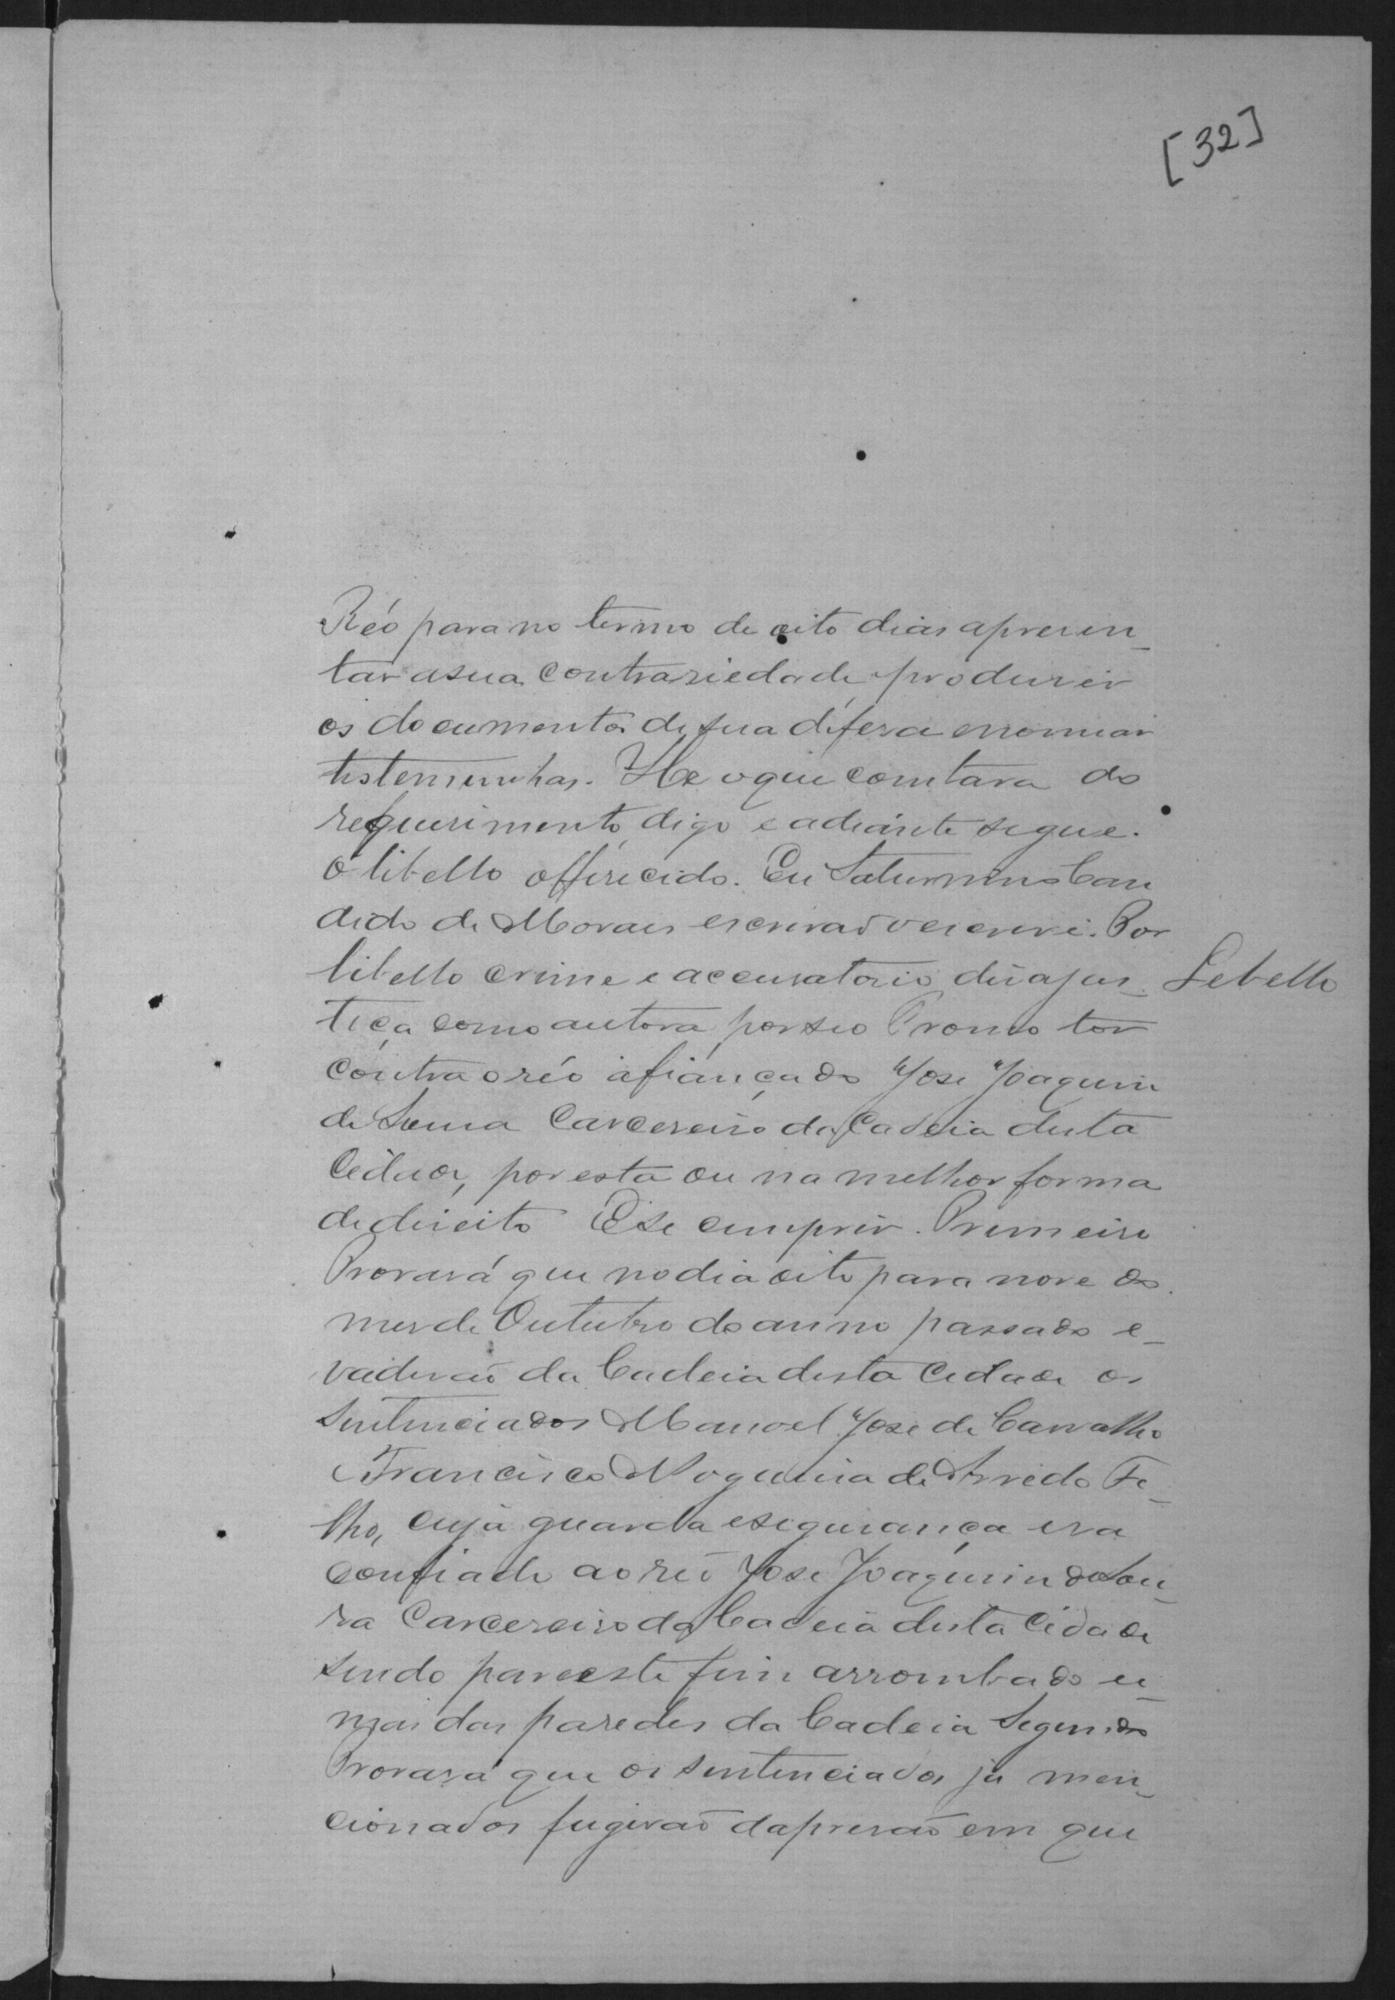 [32]
Réo para no termo de oito dias apresen-
tar a sua contrariedade produzir
os documentos de sua defesa e nomiar
testemunhas. He o que constava do
requerimento digo e adiante segue.
O libello offerecido. Eu Saturnino Can
dido de Moraes escrivão o escrevi. Por
libello crime e accusatorio diz a jus-
Libello
tiça como autora por seo Promotor
contra o réo afiançado José Joaquim
de Sousa Carcereiro da Cadeia desta
Cidade, por esta ou na melhor forma
de direito E se cumprir. Primeiro
Provará que no dia oito para nove do
mes de Outubro do anno passado e-
vadirão da Cadeia desta Cidade os
Sentenciados Manoel José de Carvalho
e Francisco Nogueira de Arredo Fi-
lho, cuja guarda e segurança era
confiada ao réo José Joaquim de Sou-
za Carcereiro da Cadeia desta Cidade
sendo para este fim arrombado u-
mas das paredes da Cadeia Segundo
Provará que os sentenciados já men-
cionados fugirão da prisão em que